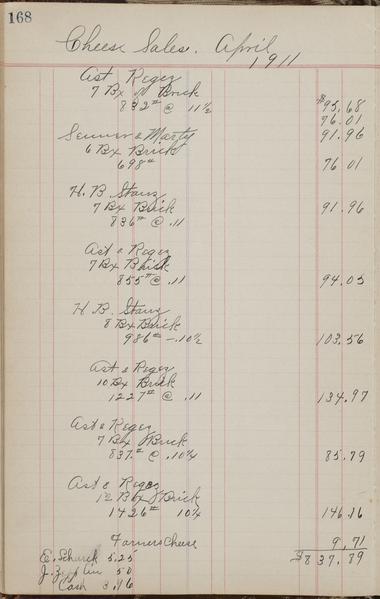 168
Cheese Sales. April
1911
Ast & Roger
7 Bx Brick
832# @ 11½ $95.68
76.01
& Marty 91.96
6 Bx Brick
698# 76 01
H. B. Stanz
7 Bx Brick 91.96
836# @ .11
Ast & Roger
7 Bx Brick
855# @ .11 94.05
H. B. Stanz
8 Bx Brick
986# — .10½ 103.56
Ast & Roger
10 Bx Brick
1227# @ .11 134.97
Ast & Roger
7 Bx Brick
837# @ .10¼ 85.79
Ast & Roger
12 Bx Brick
1426# 10¼ 146.16
Farmers Cheese 9.71
E. Schuck 5.25 $837.89
J. 50
Cash 3.96